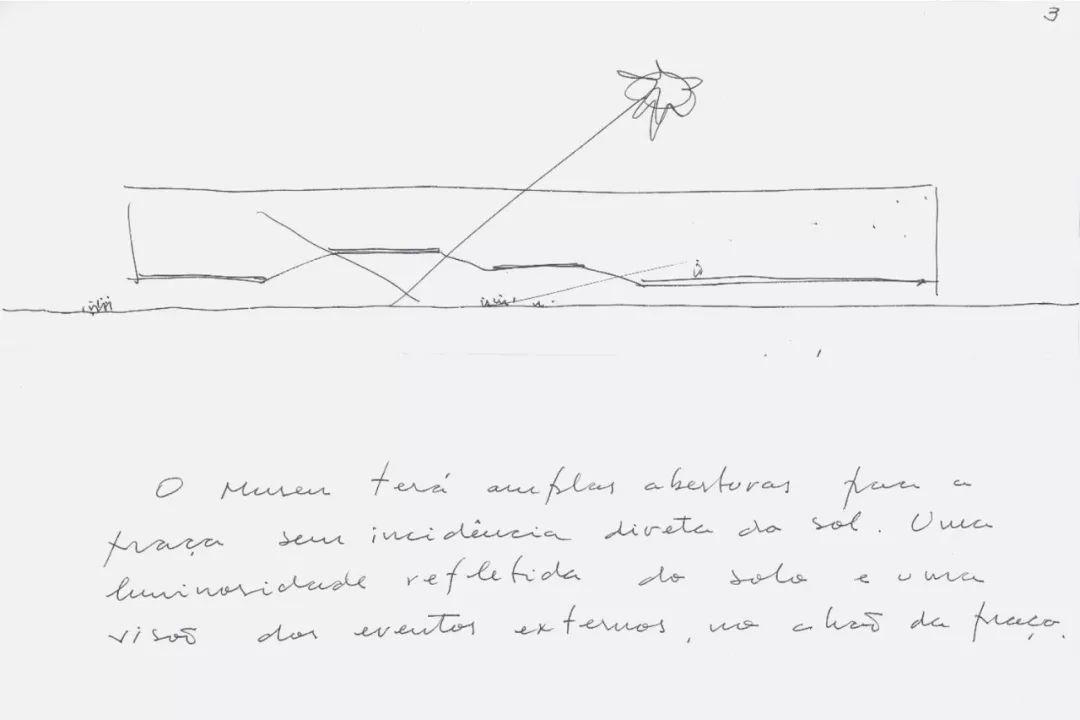 3
O Museu terá amplas aberturas para a
praça sem incidência direta do sol. Uma
luminosidade refletida do solo e uma
visão dos eventos externos, no chão da praça.